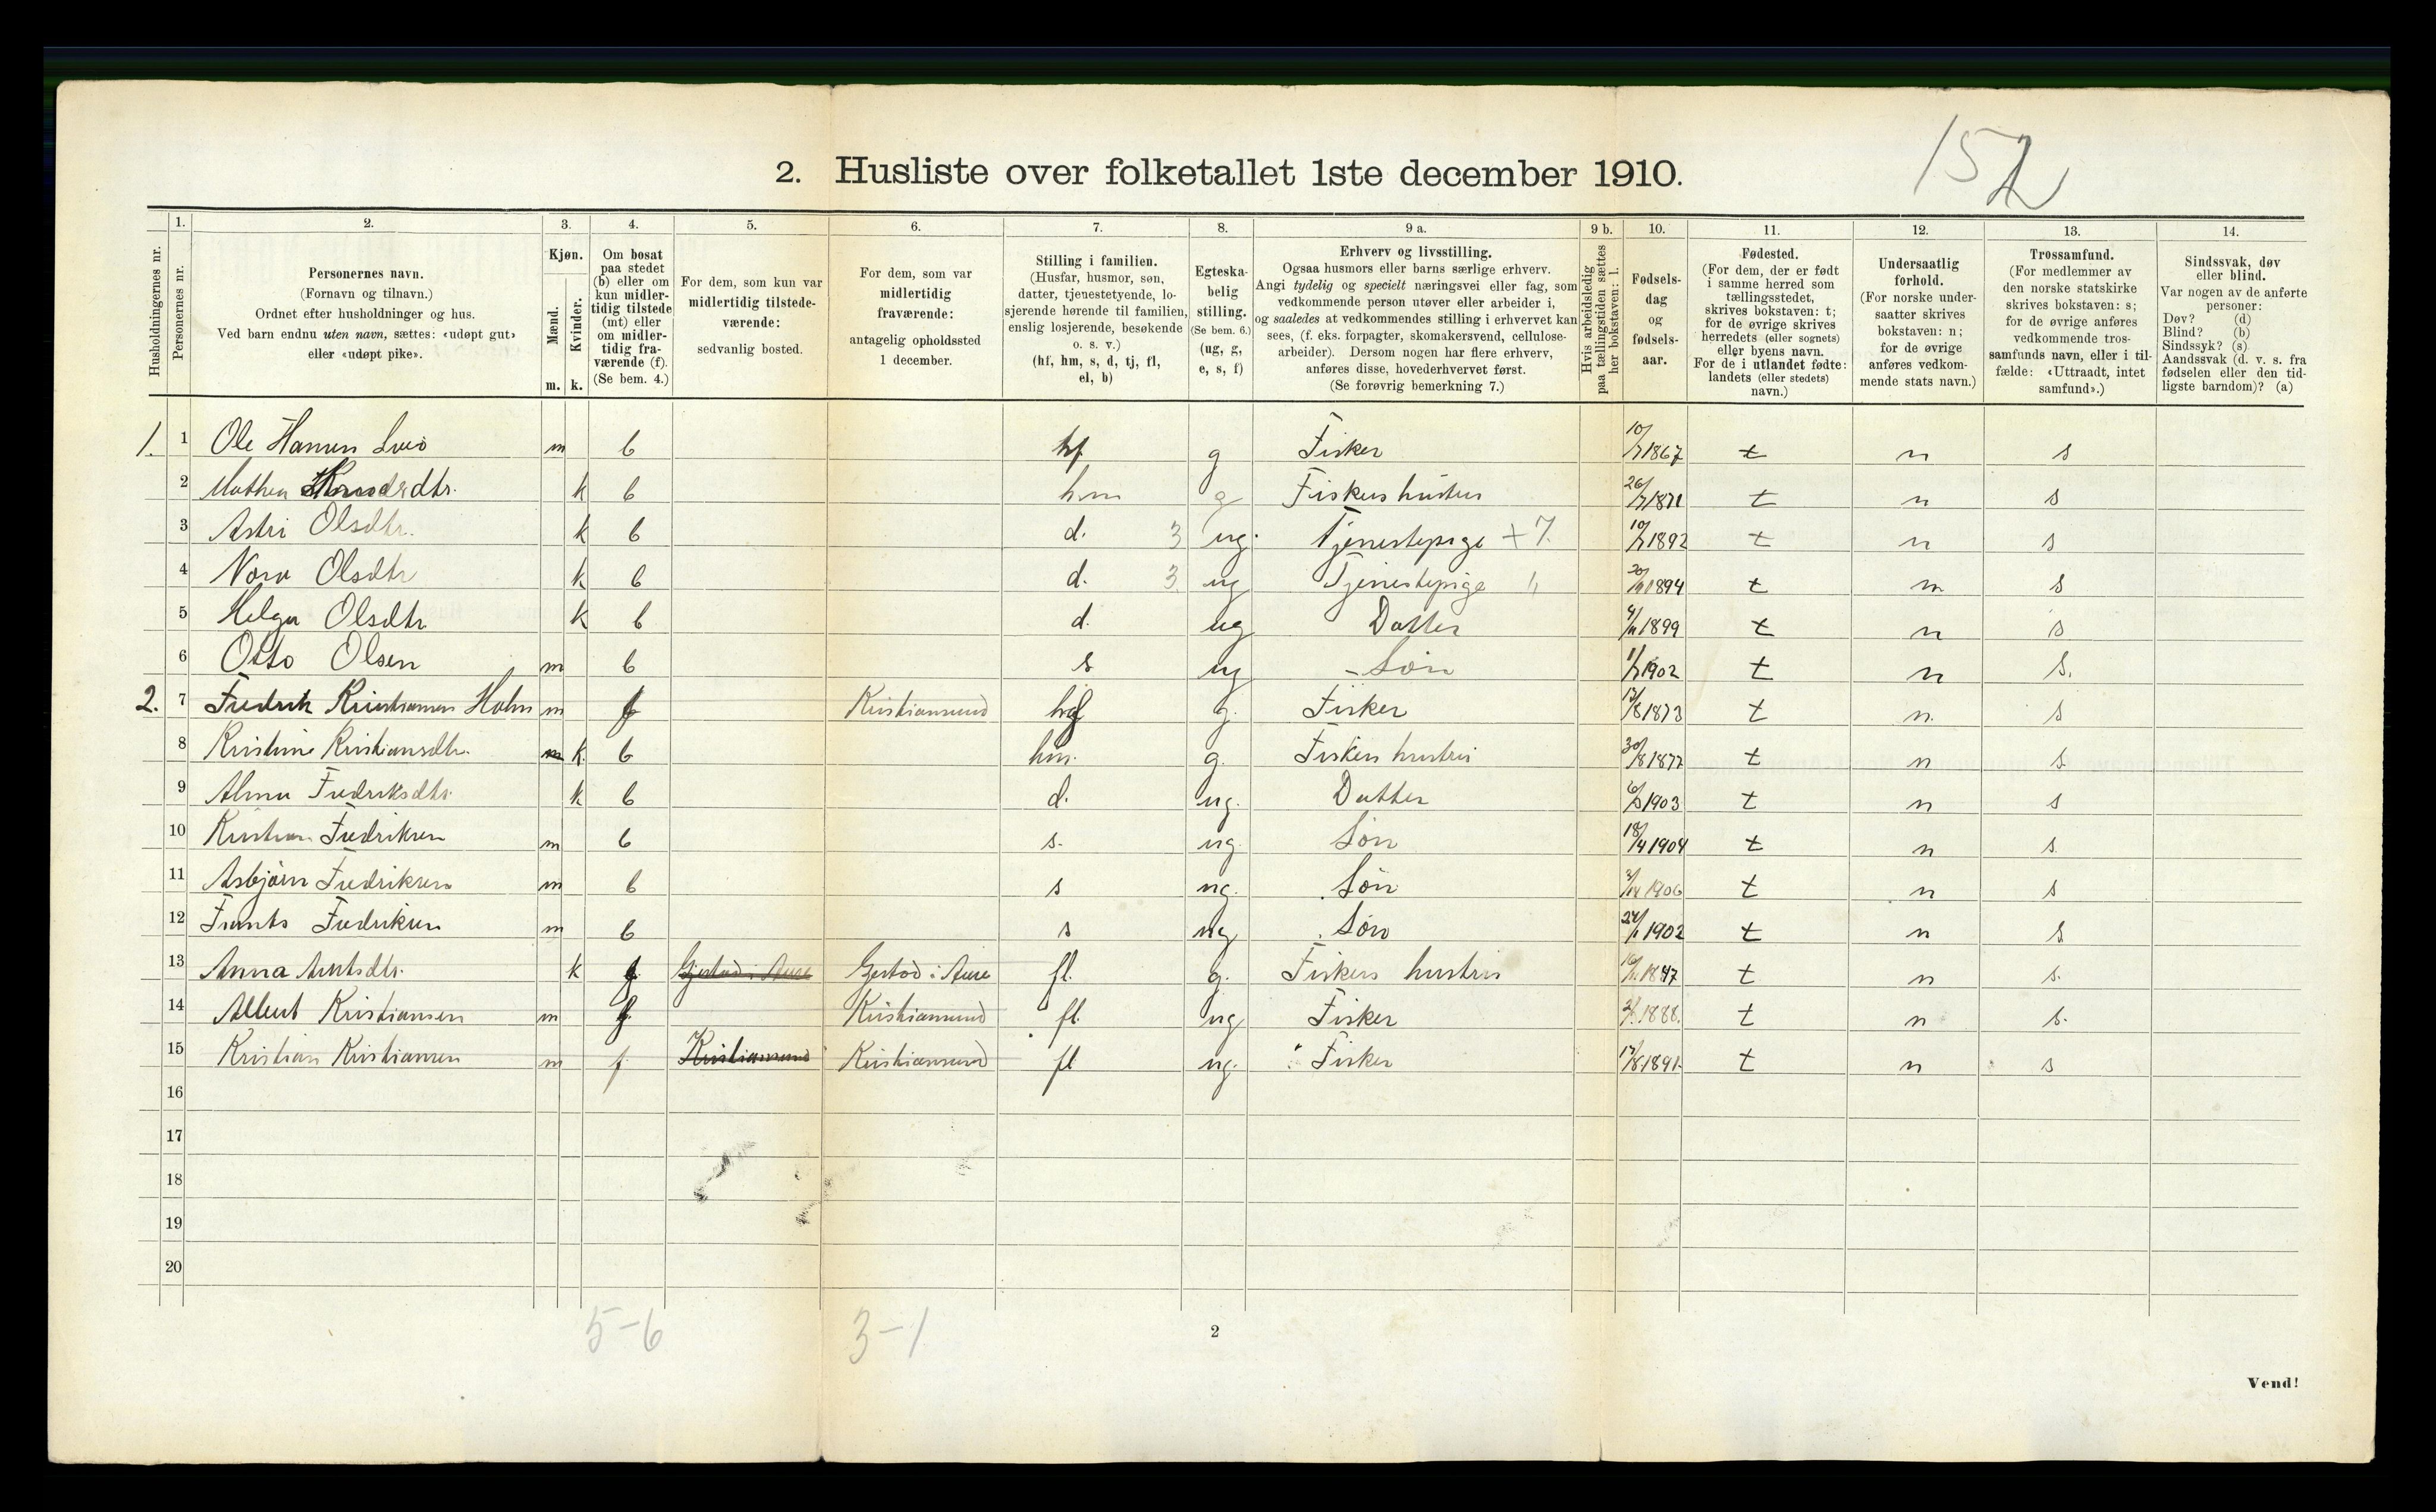 152
2. Husliste over folketallet 1ste december 1910.
Husholdningernes nr.
1. Personernes nr.
2. Personernes navn. (Fornavn og tilnavn.) Ordnet efter husholdninger og hus. Ved barn endnu uten navn, sættes: «udøpt gut» eller «udøpt pike».
3. Kjøn. Mænd. m. Kvinder. k.
4. Om bosat paa stedet (b) eller om kun midlertidig tilstede (mt) eller om midlertidig fraværende (f). (Se bem. 4.)
5. For dem, som kun var midlertidig tilstedeværende: sedvanlig bosted.
6. For dem, som var midlertidig fraværende: antagelig opholdssted 1 december.
7. Stilling i familien. (Husfar, husmor, søn, datter, tjenestetyende, losjerende hørende til familien, enslig losjerende, besøkende o. s. v.) (hf, hm, s, d, tj, fl, el, b)
8. Egteskabelig stilling. (Se bem. 6.) (ug, g, e, s, f)
9 a. Erhverv og livsstilling. Ogsaa husmors eller barns særlige erhverv. Angi tydelig og specielt næringsvei eller fag, som vedkommende person utøver eller arbeider i, og saaledes at vedkommendes stilling i erhvervet kan sees, (f. eks. forpagter, skomakersvend, cellulose-arbeider). Dersom nogen har flere erhverv, anføres disse, hovederhvervet først. (Se forøvrig bemerkning 7.)
9 b. Hvis arbeidsledig paa tællingstiden sættes her bokstaven: l.
10. Fødselsdag og fødselsaar.
11. Fødested. (For dem, der er født i samme herred som tællingsstedet, skrives bokstaven: t; for de øvrige skrives herredets (eller sognets) eller byens navn. For de i utlandet fødte: landets (eller stedets) navn.)
12. Undersaatlig forhold. (For norske undersaatter skrives bokstaven: n; for de øvrige anføres vedkommende stats navn.)
13. Trossamfund. (For medlemmer av den norske statskirke skrives bokstaven: s; for de øvrige anføres vedkommende trossamfunds navn, eller i tilfælde: «Uttraadt, intet samfund».)
14. Sindssvak, døv eller blind. Var nogen av de anførte personer: Døv? (d) Blind? (b) Sindssyk? (s) Aandssvak (d. v. s. fra fødselen eller den tidligste barndom)? (a)
1. 1 Ole Hansen m b hf g Fisker 10/7 1867 t n s
2 Mathea k b hm g Fiskers hustru 26/7 1871 t n s
3 Astri Olsdtr. k b d. 3 ug. Tjenestepige + 7. 10/7 1892 t n s
4 Nora Olsdtr k b d. 3. ug Tjenestepige " 1894 t n s
5 Helga Olsdtr k b d. ug Datter 4/11 1899 t n s
6 Otto Olsen m b s ug - Søn 1/7 1902 t n s.
2. 7 Fredrik Kristiansen Holm m f Kristiansund hf g. Fisker 13/8 1873 t n. s
8 Kristine Kristiansdtr. k. b hm. g. Fiskers hustru 30/8 1877 t n s.
9 Alma Fredriksdtr. k b d. ug. Datter 6/8 1903 t n s
10 Kristian Fredriksen m b s. ug. Søn 18/4 1904 t n s.
11 Asbjørn Fredriksen m b s ug. Søn 1906 t n s
12 Frants Fredriksen m b s ug Søn 1902 t n s
13 Anna Arntsdtr. k f Gjestad i Aure Gjestad i Aure fl. g. Fiskers hustru 1847 t n s.
14 Albert Kristiansen m f Kristiansund fl. ug Fisker 1888. t n s.
15 Kristian Kristiansen m f. Kristiansund Kristiansund fl ug. " Fisker 17/8 1891. t n s
16
17
18
19
20
5-6 3-1
2
Vend!